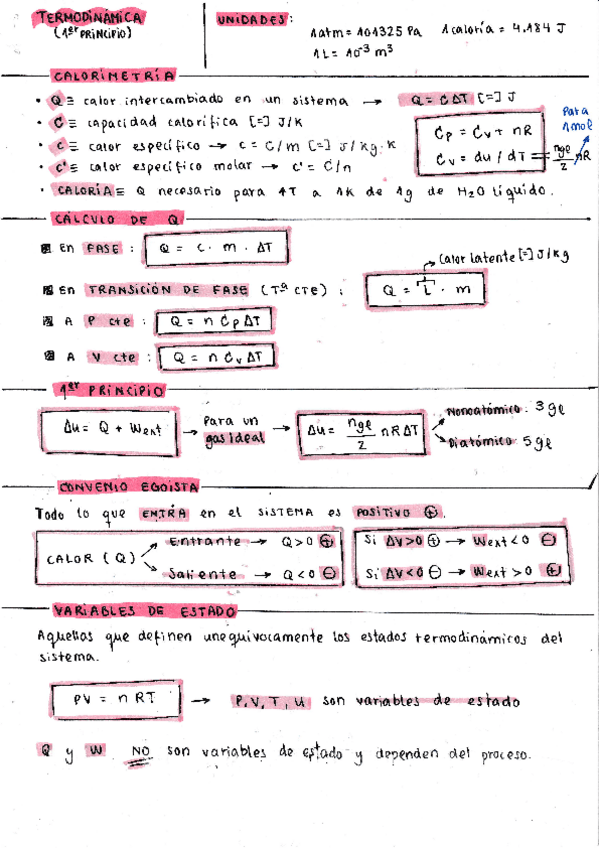 TERMODINÁMICA
(1er PRINCIPIO)
UNIDADES:
1atm = 101325 Pa 1 caloría = 4.184 J
1 L = 10⁻³ m³
CALORIMETRÍA
• Q ≡ calor intercambiado en un sistema → Q = C ΔT [=] J
• C ≡ capacidad calorífica [=] J/K
• c ≡ calor específico → c = C/m [=] J/kg·K
• c' ≡ calor específico molar → c' = C/n
• CALORÍA ≡ Q necesario para ΔT a 1K de 1g de H₂O líquido.
Cp = Cv + nR
Cv = du/dT = ngl/2 nR
Para 1 mol
CÁLCULO DE Q
En FASE: Q = c · m · ΔT
Calor latente [=] J/kg
En TRANSICIÓN DE FASE (Tª cte): Q = L · m
A P cte: Q = n Cp ΔT
A V cte: Q = n Cv ΔT
1er PRINCIPIO
Δu = Q + Wext → Para un gas ideal → Δu = ngl/2 nRΔT
Monoatómico: 3 gl
Diatómico: 5 gl
CONVENIO EGOISTA
Todo lo que ENTRA en el SISTEMA es POSITIVO ⊕.
CALOR (Q)
Entrante → Q>0 ⊕
Saliente → Q<0 ⊖
Si ΔV>0 ⊕ → Wext<0 ⊖
Si ΔV<0 ⊖ → Wext>0 ⊕
VARIABLES DE ESTADO
Aquellas que definen unequivocamente los estados termodinámicos del
sistema.
PV = n RT → P, V, T, U son variables de estado
Q y W NO son variables de estado y dependen del proceso.